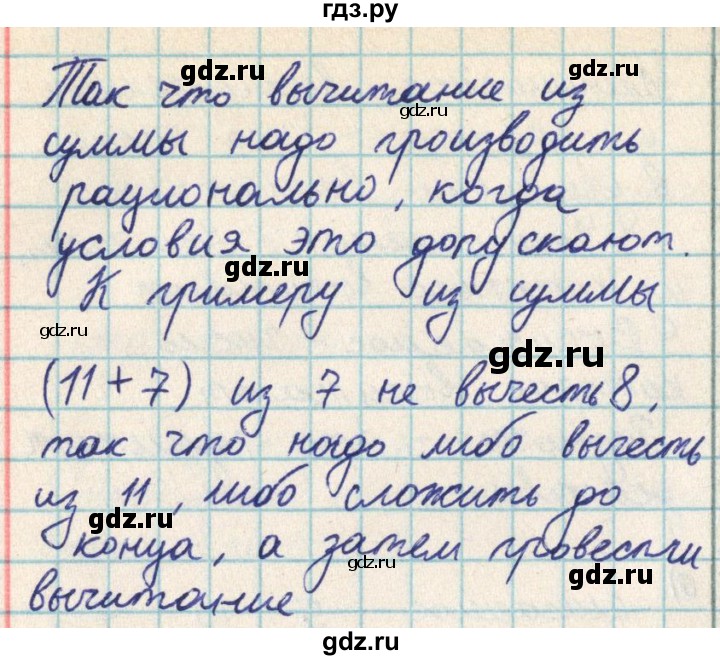 гдз.ру
gdz.ru
Так что вычитание из
gdz.ru
суммы надо производить
gdz.ru
рационально, когда
gdz.ru
условия это допускают.
gdz.ru
К примеру из суммы
gdz.ru
gdz.ru
(11+7) из 7 не вычесть 8,
так что надо либо вычесть
из 11, либо сложить до
gdz.ru
конца, а затем провести
gdz.ru
gdz.ru
вычитание
gdz.ru